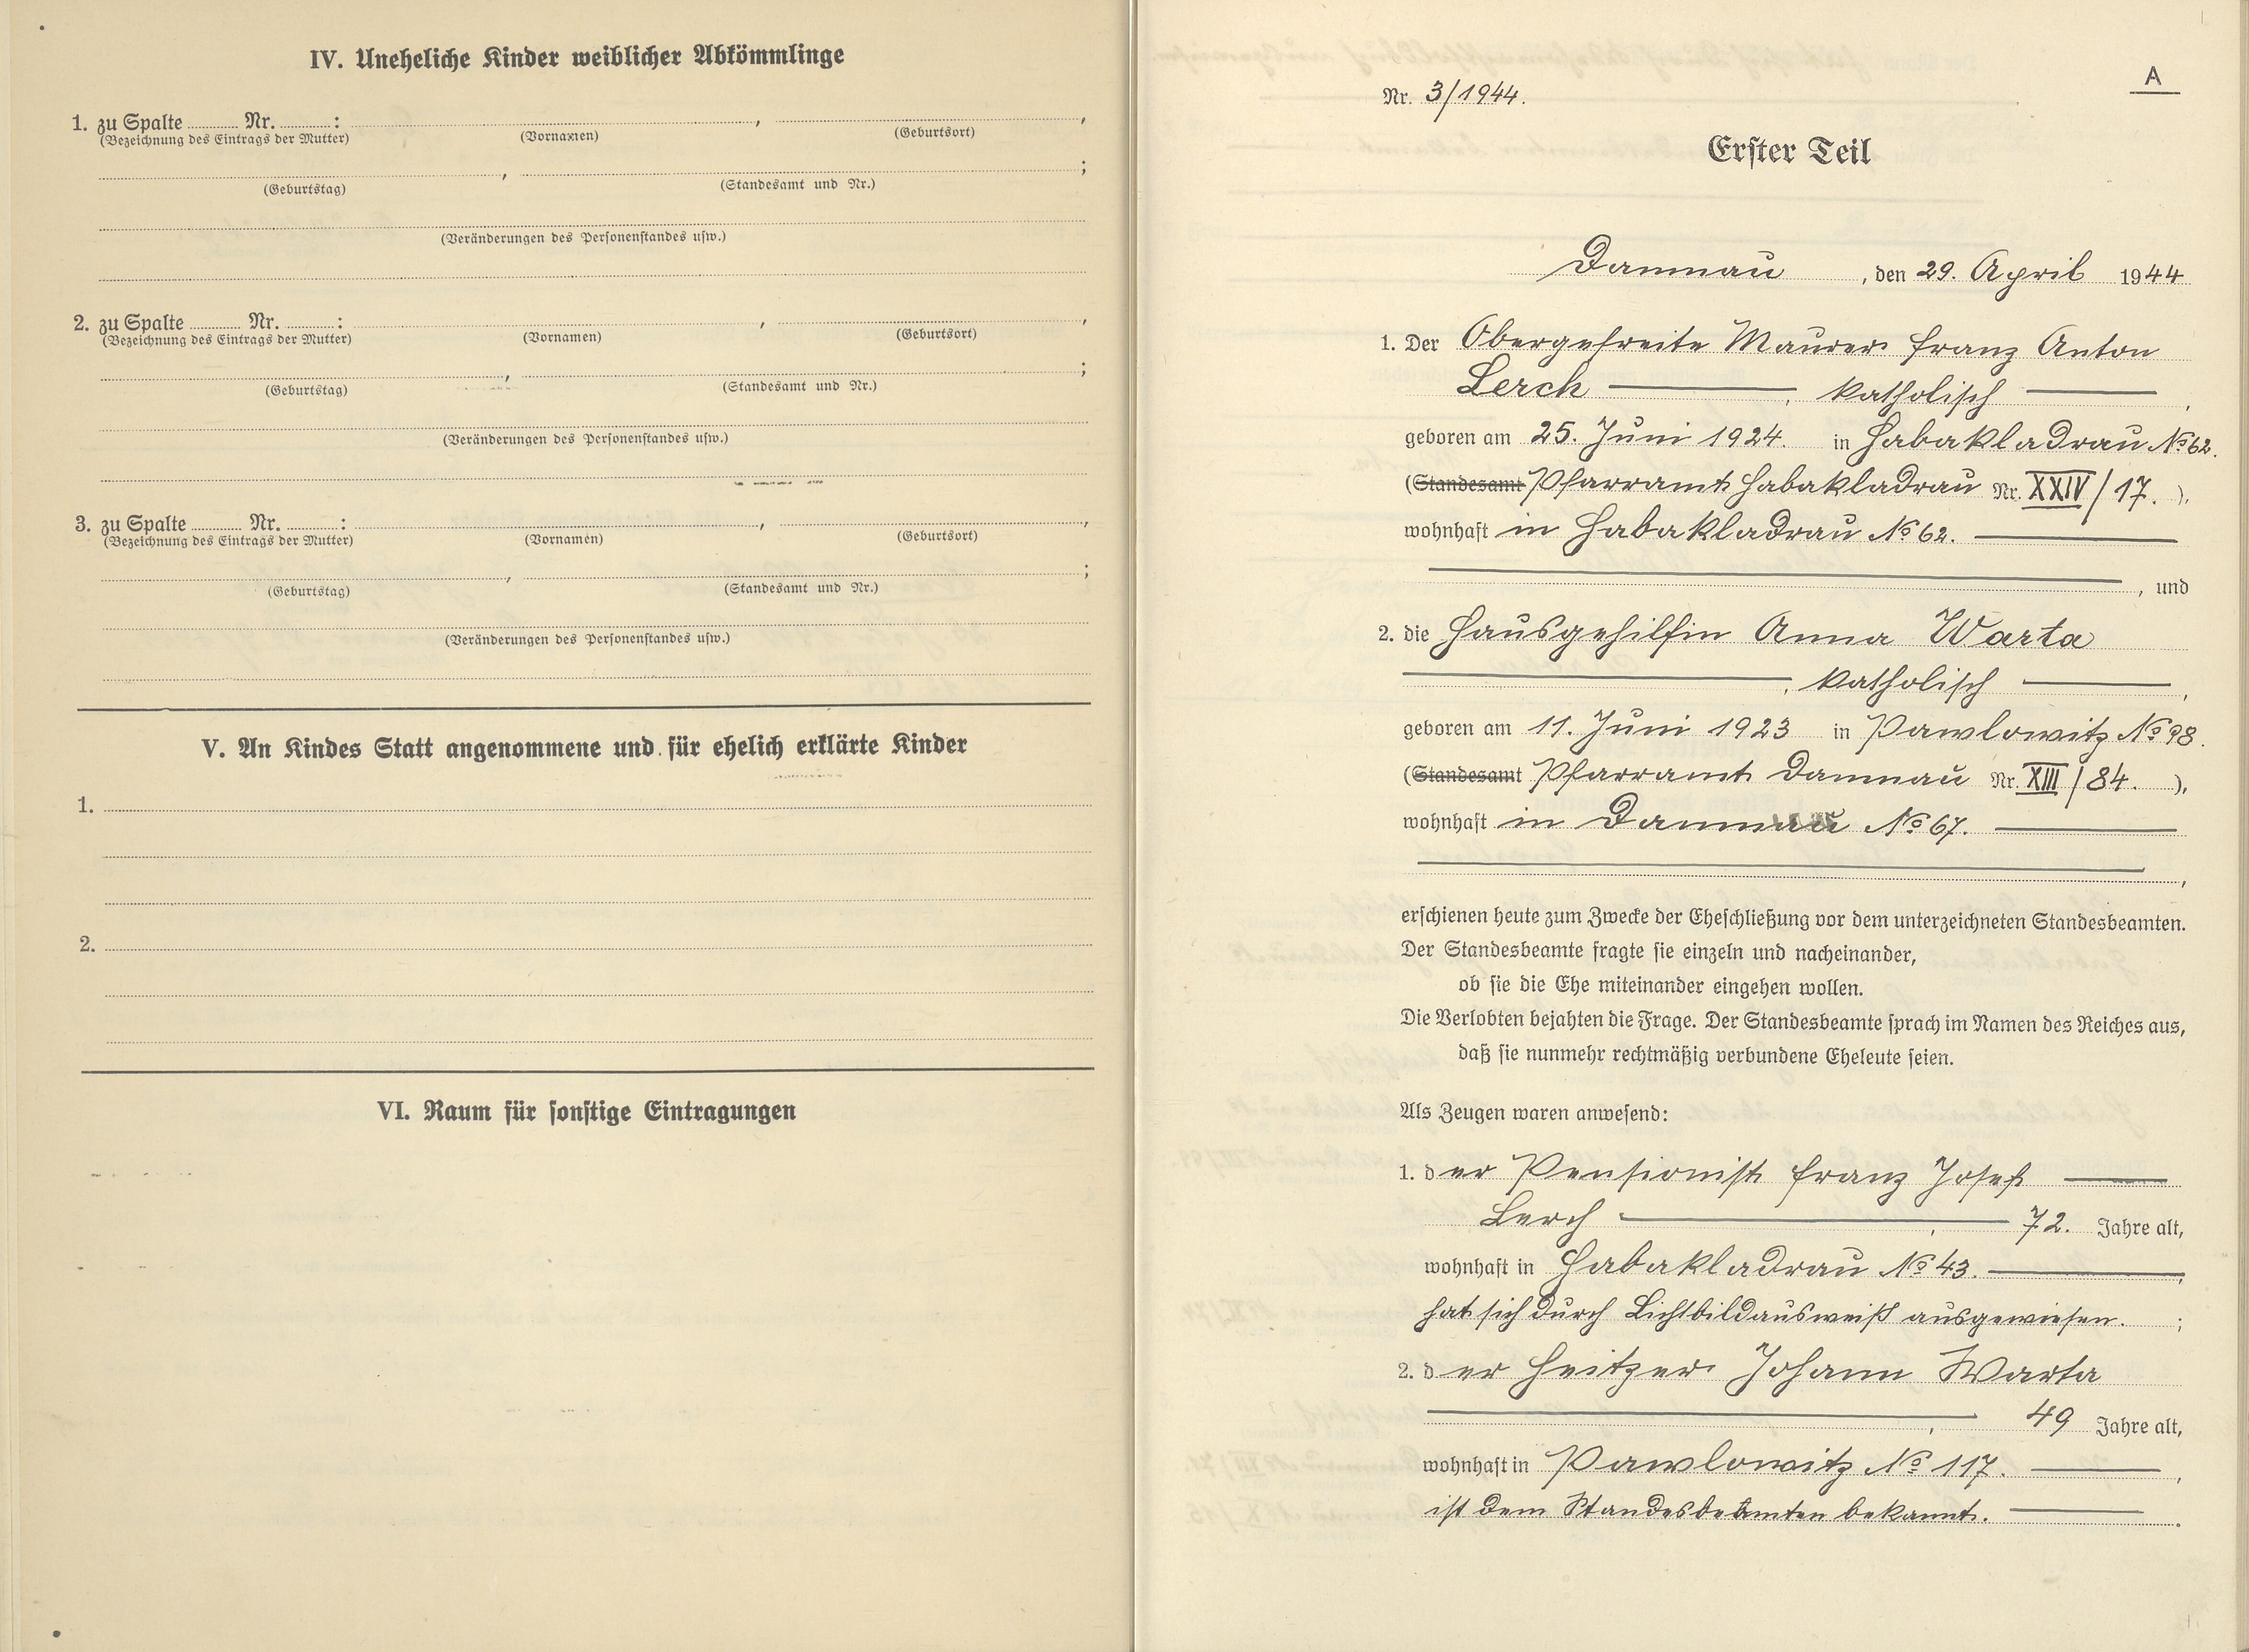 IV. Uneheliche Kinder weiblicher Abkömmlinge
1. zu Spalte ........ Nr. ........ : , ,
(Bezeichnung des Eintrags der Mutter) (Vornamen) (Geburtsort)
, ;
(Geburtstag) (Standesamt und Nr.)
(Veränderungen des Personenstandes usw.)
2. zu Spalte ........ Nr. ........ : , ,
(Bezeichnung des Eintrags der Mutter) (Vornamen) (Geburtsort)
, ;
(Geburtstag) (Standesamt und Nr.)
(Veränderungen des Personenstandes usw.)
3. zu Spalte ........ Nr. ........ : , ,
(Bezeichnung des Eintrags der Mutter) (Vornamen) (Geburtsort)
, ;
(Geburtstag) (Standesamt und Nr.)
(Veränderungen des Personenstandes usw.)
V. An Kindes Statt angenommene und für ehelich erklärte Kinder
1.
2.
VI. Raum für sonstige Eintragungen
A
Nr. 3/1944.
Erster Teil
Damnau, den 29. April 1944
1. Der Obergefreite Maurer Franz Anton
Lerch, katholisch,
geboren am 25. Juni 1924. in Habakladrau No 62.
(Standesamt Pfarramt Habakladrau Nr. XXIV/17.),
wohnhaft in Habakladrau No 62.
, und
2. die Hausgehilfin Anna Warta
, katholisch,
geboren am 11. Juni 1923 in Pawlowitz No 98.
(Standesamt Pfarramt Damnau Nr. XIII/84.),
wohnhaft in Damnau No 67.
,
erschienen heute zum Zwecke der Eheschließung vor dem unterzeichneten Standesbeamten.
Der Standesbeamte fragte sie einzeln und nacheinander,
ob sie die Ehe miteinander eingehen wollen.
Die Verlobten bejahten die Frage. Der Standesbeamte sprach im Namen des Reiches aus,
daß sie nunmehr rechtmäßig verbundene Eheleute seien.
Als Zeugen waren anwesend:
1. der Pensionist Franz Josef
Lerch, 72. Jahre alt,
wohnhaft in Habakladrau No 43.,
hat sich durch Lichtbildausweiß ausgewiesen. ;
2. der Heitzer Johann Warta
, 49 Jahre alt,
wohnhaft in Pawlowitz No 117.,
ist dem Standesbeamten bekannt.